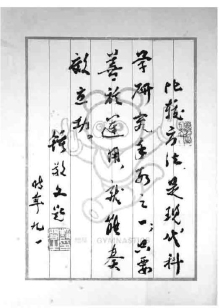 比较方法,是现代科
学研究手段之一,只要
善于运用,就能奏
敲立功
钟敬文题
时年九一
GYMNAS